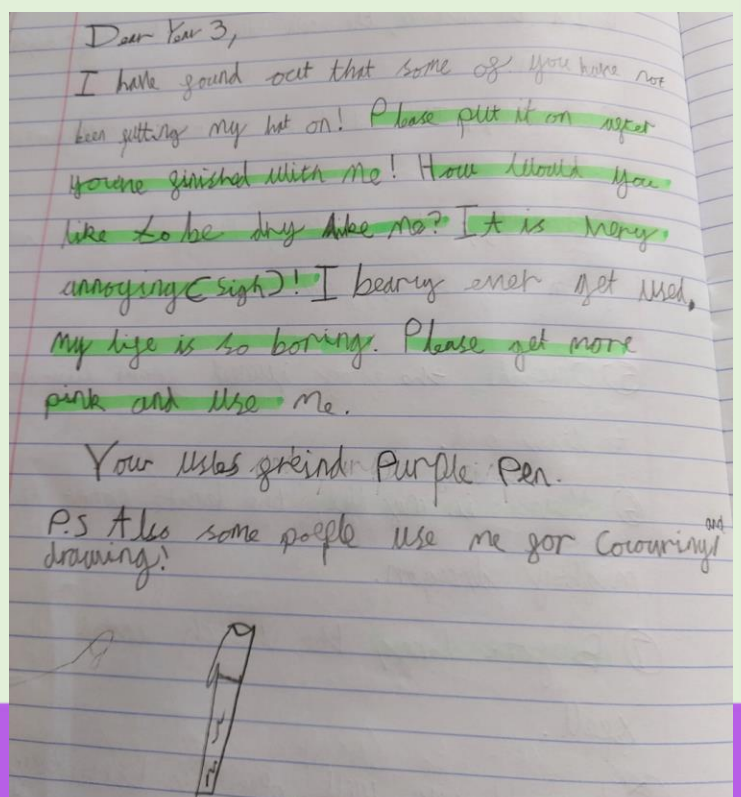 Dear Year 3,
I have found out that some of you have not
been putting my hat on! Please put it on after
you're finished with me! How would you
like to be dry like me? It is very
annoying (sigh)! I bearly ever get used,
my life is so boring. Please get more
pink and use me.
Your usles freind Purple Pen.
P.S Also some poeple use me for Cocouring and
drawing!